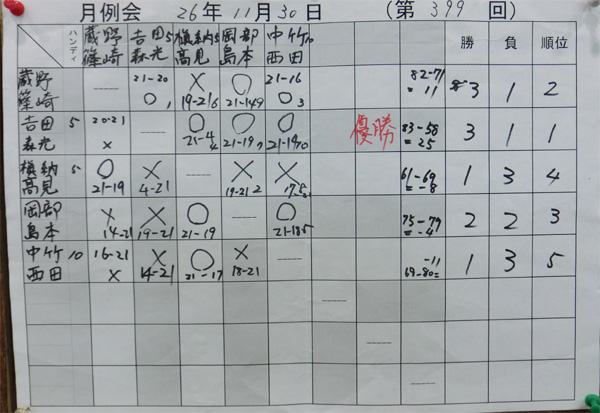 月例会 26年11月30日 (第399回)
ハンディ 蔵野 吉田5 槇納5 岡部 中竹10 勝 負 順位
篠崎 森光 高見 島本 西田
蔵野 21-20 × ○ ○ 21-16 82-71 3 1 2
篠崎 ○ 19-21 21-14 ○ = 11
吉田 5 20-21 ○ ○ ○ 優勝 83-58 3 1 1
森光 × 21-4 21-19 21-14 = 25
槇納 5 ○ × × × 61-69 1 3 4
高見 21-19 4-21 19-21 = -8
岡部 × × ○ ○ 75-79 2 2 3
島本 14-21 19-21 21-19 21-18 = -4
中竹 10 16-21 × ○ × -11 1 3 5
西田 × 14-21 21-17 18-21 69-80=